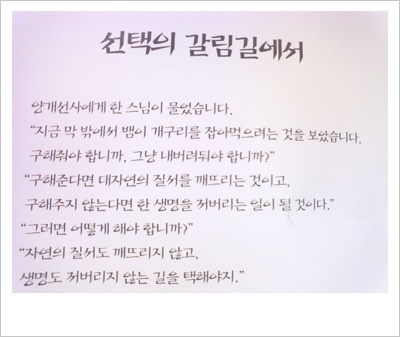 선택의 갈림길에서
양개선사에게 한 스님이 물었습니다.
"지금 막 밖에서 뱀이 개구리를 잡아먹으려는 것을 보았습니다.
구해줘야 합니까, 그냥 내버려둬야 합니까?"
"구해준다면 대자연의 질서를 깨뜨리는 것이고,
구해주지 않는다면 한 생명을 저버리는 일이 될 것이다."
"그러면 어떻게 해야 합니까?"
"자연의 질서도 깨뜨리지 않고,
생명도 저버리지 않는 길을 택해야지."